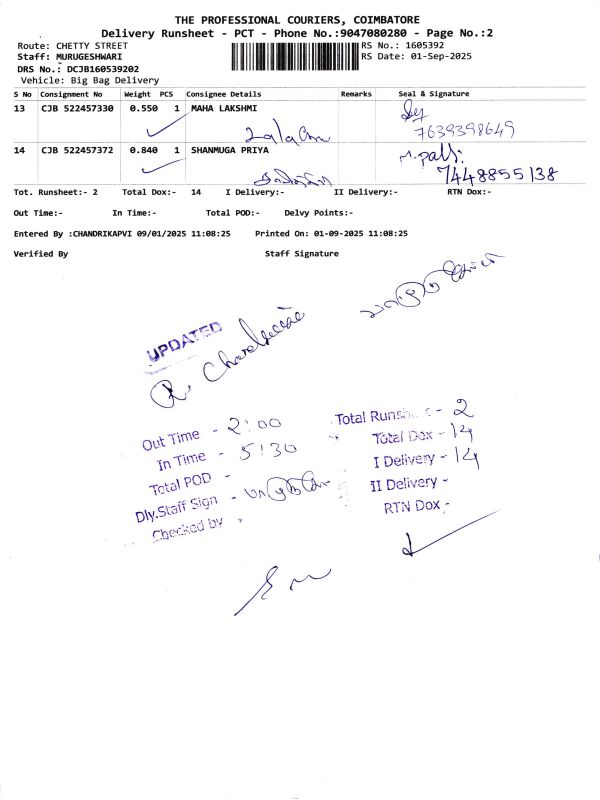 THE PROFESSIONAL COURIERS, COIMBATORE
Delivery Runsheet - PCT - Phone No.:9047080280 - Page No.:2
Route: CHETTY STREET RS No.: 1605392
Staff: MURUGESHWARI RS Date: 01-Sep-2025
DRS No.: DCJB160539202
Vehicle: Big Bag Delivery
S No Consignment No Weight PCS Consignee Details Remarks Seal & Signature
13 CJB 522457330 0.550 1 MAHA LAKSHMI
7639398649
14 CJB 522457372 0.840 1 SHANMUGA PRIYA
7448855138
Tot. Runsheet:- 2 Total Dox:- 14 I Delivery:- II Delivery:- RTN Dox:-
Out Time:- In Time:- Total POD:- Delvy Points:-
Entered By :CHANDRIKAPVI 09/01/2025 11:08:25 Printed On: 01-09-2025 11:08:25
Verified By Staff Signature
UPDATED
Out Time - 2:00
In Time - 5:30
Total POD -
Dly.Staff Sign -
Checked by
Total Dox - 14
I Delivery - 14
II Delivery -
RTN Dox -